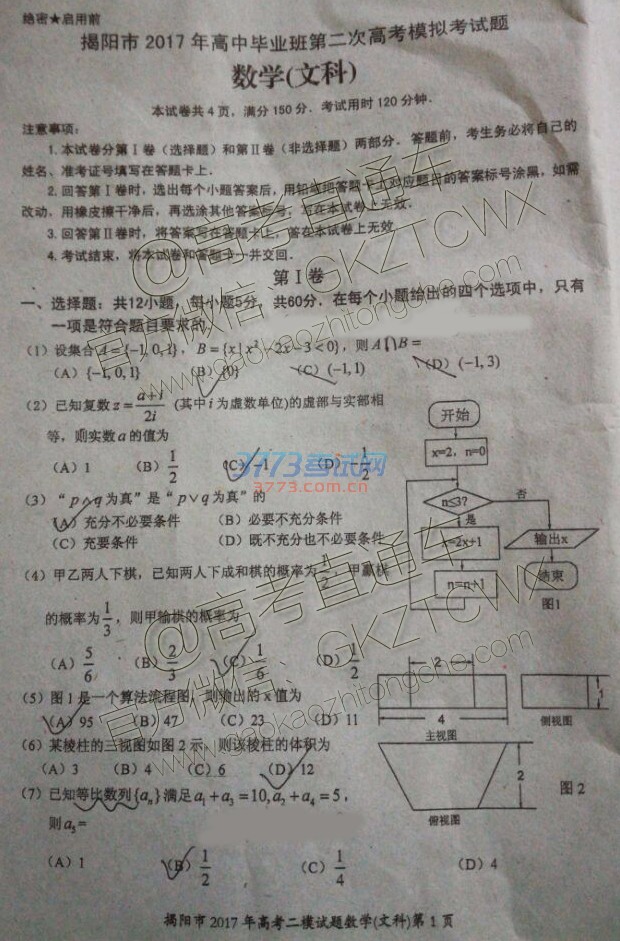 绝密★启用前
揭阳市2017年高中毕业班第二次高考模拟考试题
数学(文科)
本试卷共4页，满分150分．考试用时120分钟．
注意事项：
1.本试卷分第Ⅰ卷（选择题）和第Ⅱ卷（非选择题）两部分．答题前，考生务必将自己的
姓名、准考证号填写在答题卡上．
2.回答第Ⅰ卷时，选出每个小题答案后，用铅笔把答题卡上对应题目的答案标号涂黑，如需
改动，用橡皮擦干净后，再选涂其他答案标号，写在本试卷上无效．
3.回答第Ⅱ卷时，将答案写在答题卡上，答在本试卷上无效．
4.考试结束，将本试卷和答题卡一并交回．
第Ⅰ卷
一、选择题：共12小题，每小题5分，共60分．在每个小题给出的四个选项中，只有
一项是符合题目要求的．
（1）设集合A={-1,0,1}，B={x|x²-2x-3<0}，则A⋂B=
（A）{-1,0,1} （B）{0} （C）(-1,1) （D）(-1,3)
（2）已知复数z=(a+i)/2i (其中i为虚数单位)的虚部与实部相
等，则实数a的值为
（A）1 （B）1/2 （C）-1 （D）-1/2
（3）“p∧q为真”是“p∨q为真”的
（A）充分不必要条件 （B）必要不充分条件
（C）充要条件 （D）既不充分也不必要条件
（4）甲乙两人下棋，已知两人下成和棋的概率为1/2，甲赢棋
的概率为1/3，则甲输棋的概率为
（A）5/6 （B）2/3 （C）1/6 （D）1/2
（5）图1是一个算法流程图，则输出的x值为
（A）95 （B）47 （C）23 （D）11
（6）某棱柱的三视图如图2示，则该棱柱的体积为
（A）3 （B）4 （C）6 （D）12
（7）已知等比数列{aₙ}满足a₁+a₃=10,a₂+a₄=5，
则a₅=
（A）1 （B）1/2 （C）1/4 （D）4
开始
x=2，n=0
n≤3?
否
是
x=2x+1
输出x
n=n+1
结束
图1
2
4
1
主视图
侧视图
2
图2
俯视图
揭阳市2017年高考二模试题数学(文科)第1页
@高考直通车
官方微信：GKZTCWX
www.gaokaozhitongche.com
3773考试网
3773.com.cn
@高考直通车
官方微信：GKZTCWX
www.gaokaozhitongche.com